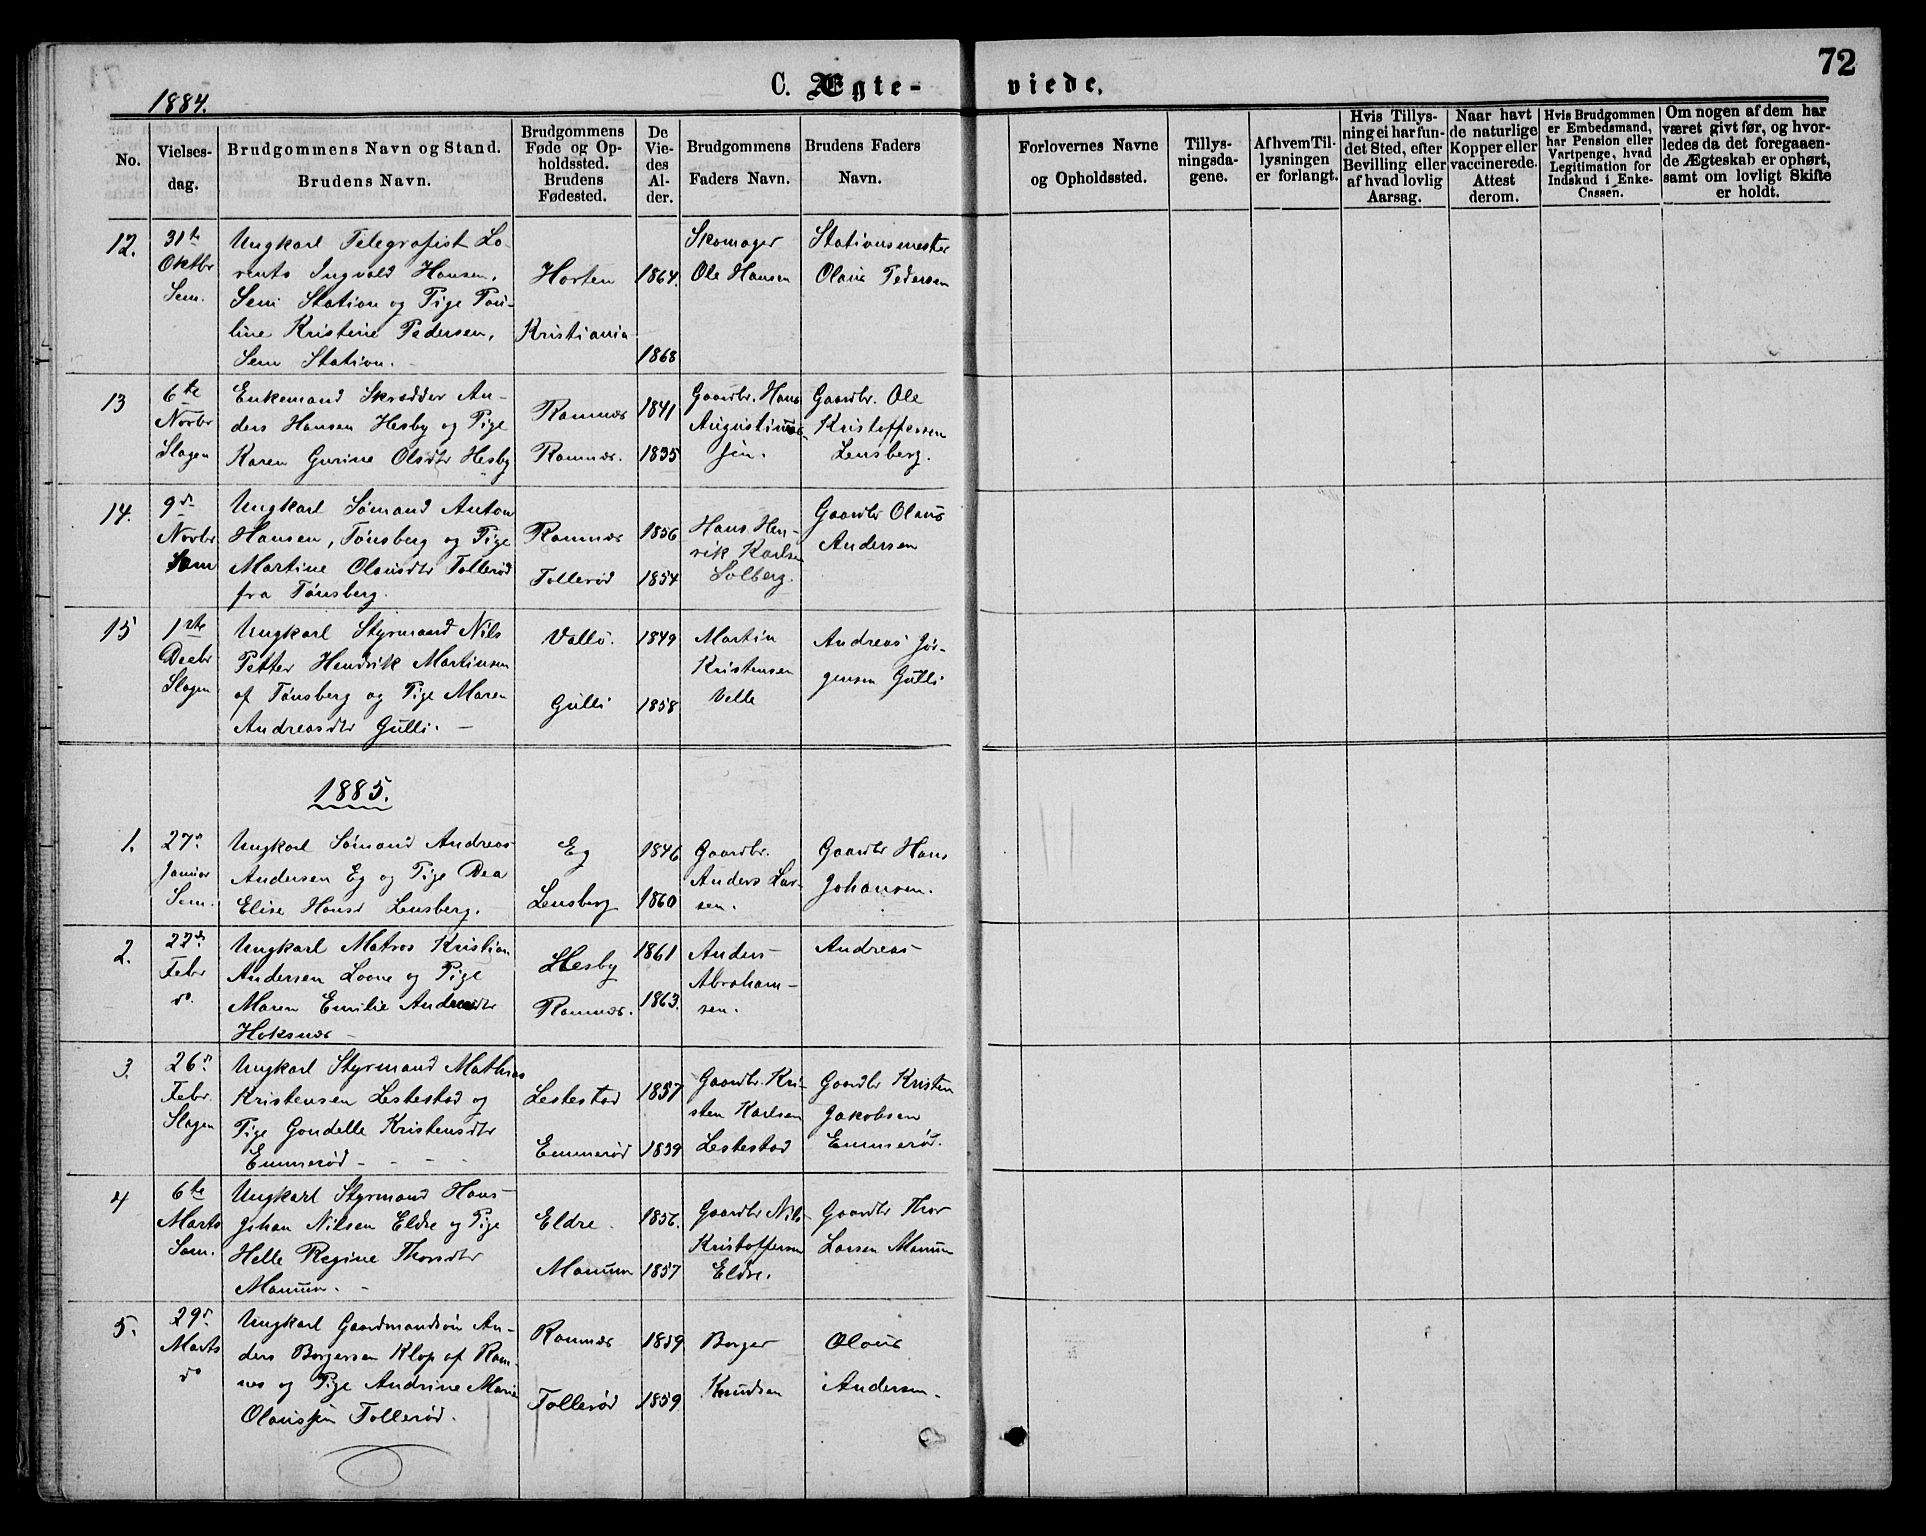 72
C. Ægte- viede.
1884.
No.
Vielses-
dag.
Brudgommens Navn og Stand.
Brudens Navn.
Brudgommens
Føde og Op-
holdssted.
Brudens
Fødested.
De
Vie-
des
Al-
der.
Brudgommens
Faders Navn.
Brudens Faders
Navn.
Forlovernes Navne
og Opholdssted.
Tillys-
ningsda-
gene.
Af hvem Til-
lysningen
er forlangt.
Hvis Tillys-
ning ei har fun-
det Sted, efter
Bevilling eller
af hvad lovlig
Aarsag.
Naar havt
de naturlige
Kopper eller
vaccinerede.
Attest
derom.
Hvis Brudgommen
er Embedsmand,
har Pension eller
Vartpenge, hvad
Legitimation for
Indskud i Enke-
Cassen.
Om nogen af dem har
været givt før, og hvor-
ledes da det foregaaen-
de Ægteskab er ophørt,
samt om lovligt Skifte
er holdt.
12.
31te
Oktbr
Sem.
Ungkarl Telegrafist Lo-
rents Ingvald Hansen,
Sem Station og Pige Pau-
line Kristine Pedersen,
Sem Station.
Horten
Kristiania
1864.
1868
Skomager
Ole Hansen
Stationsmester
Olaus Pedersen
13
6te
Novbr
Slagen
Enkemand Skrædder An-
ders Hansen Hesby og Pige
Karen Gurine Olsdtr Hesby
Ramnæs
Ramnæs.
1841
1835
Gaardbr. Hans
Augustinus-
sen.
Gaardbr. Ole
Kristoffersen
Lensberg.
14.
9de
Novbr
Sem
Ungkarl Sømand Anton
Hansen, Tønsberg og Pige
Martine Olausdtr Tollerød
fra Tønsberg.
Ramnæs
Tollerød
1856
1854
Hans Hen-
rik Karlsen
Solberg.
Gaardbr Olaus
Andersen
15
1ste
Decbr
Slagen
Ungkarl Styrmand Nils
Petter Hendrik Martinsen
af Tønsberg og Pige Maren
Andreasdtr Gulli. -
Vallø.
Gulli
1849
1858
Martin
Kristensen
Velle
Andreas Jør-
gensen Gulli
1885.
1.
27de
Januar
Sem.
Ungkarl Sømand Andreas
Andersen Eg og Pige Dea
Elise Hansd Lensberg.
Eg
Lensberg
1846
1860
Gaardbr.
Anders Lar-
sen.
Gaardbr Hans
Johansen.
2.
22de
Febr
do.
Ungkarl Matros Kristian
Andersen Loone og Pige
Maren Emilie Andreasdtr
Hoksnæs -
Hesby
Ramnæs.
1861
1863.
Anders
Abraham-
sen.
Andreas
3.
26de
Febr.
Slagen
Ungkarl Styrmand Mathias
Kristensen Lestestad og
Pige Gondelle Kristensdtr
Emmerød - - - -
Lestestad
Emmerød
1857
1859
Gaardbr. Kri-
sten Karlsen
Lestestad
Gaardbr Kristen
Jakobsen
Emmerød.
4
6te
Marts
Sem.
Ungkarl Styrmand Hans
Johan Nilsen Eldre og Pige
Helle Regine Thorsdtr
Manum. -
Eldre.
Manum
1856.
1857
Gaardbr Nils
Kristoffersen
Eldre.
Gaardbr Thor
Larsen Manum
5.
29de
Marts
do
Ungkarl Gaardmandsøn An-
ders Borgersen Klop af Ram-
næs og Pige Andrine Marie
Olaussen Tollerød.
Ramnæs
Tollerød
1859
1859
Borger
Knudsen
Olaus
Andersen.